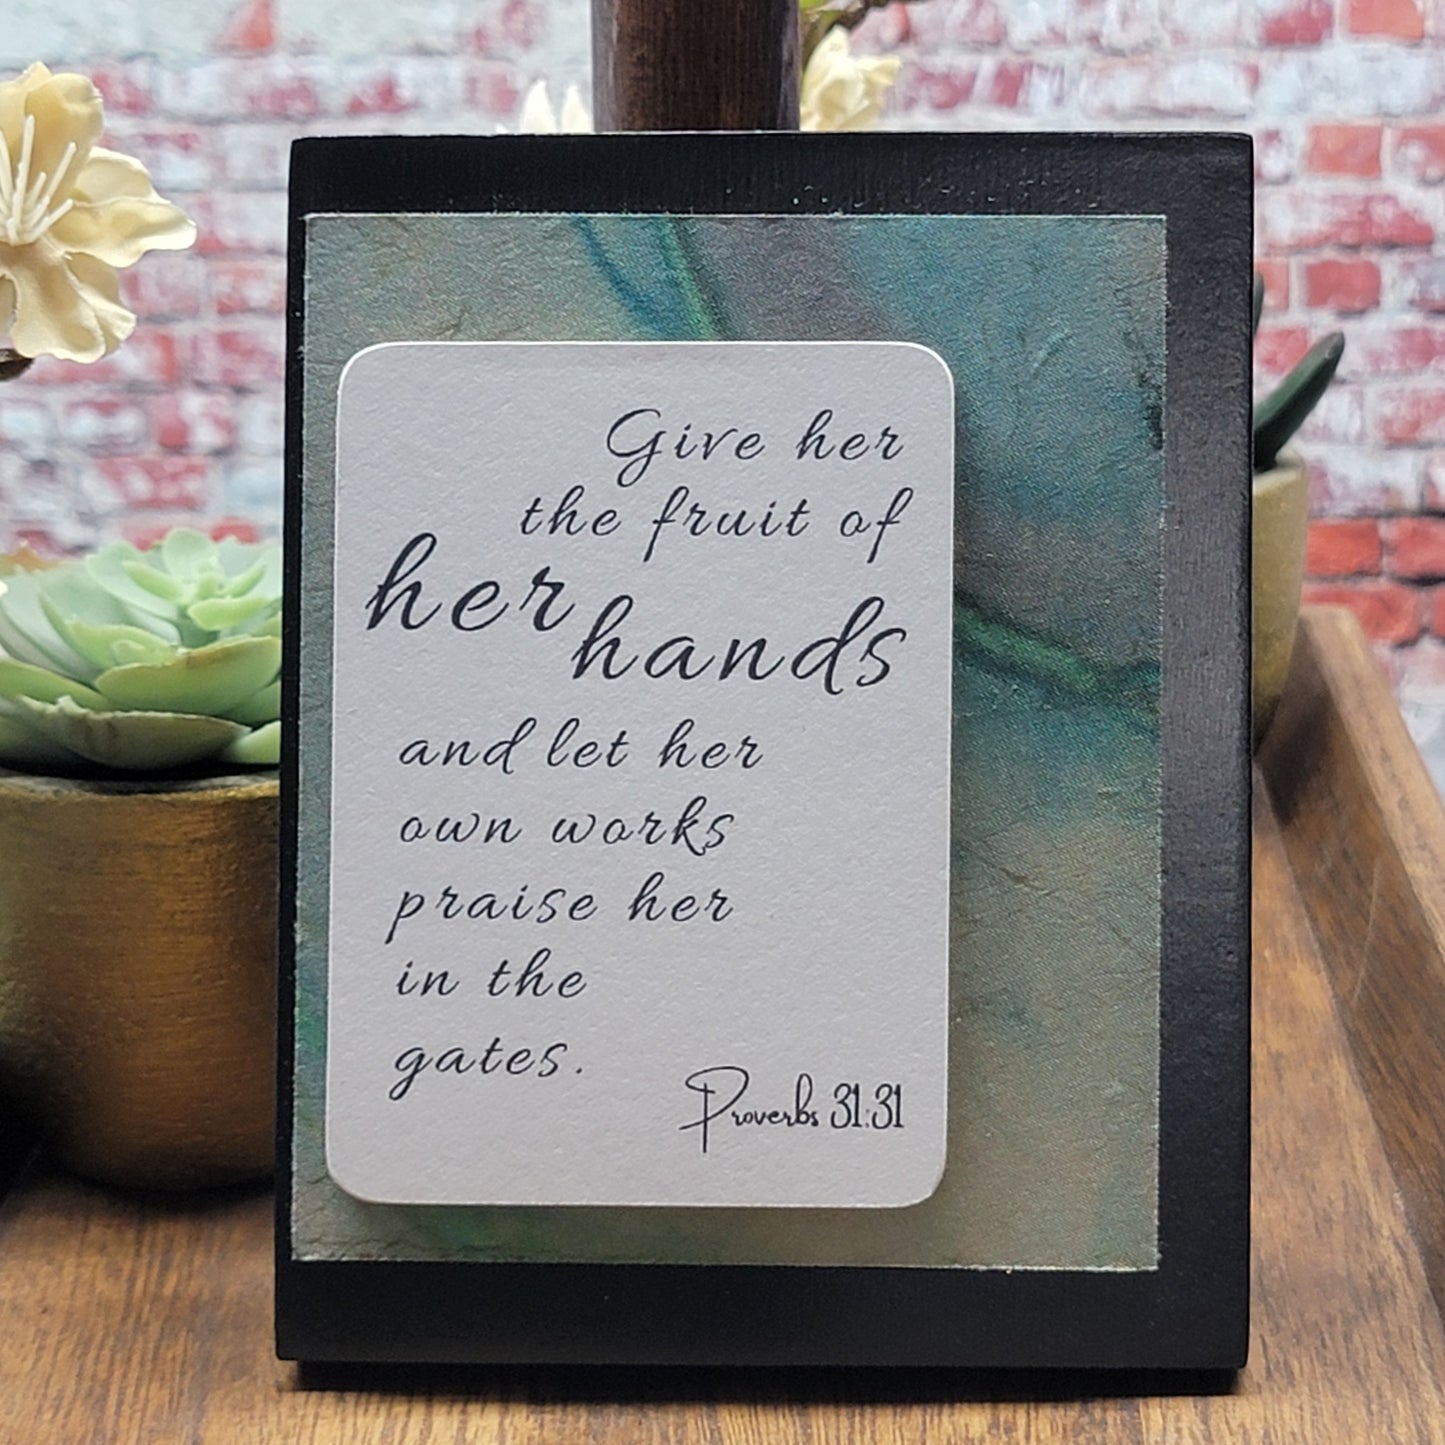 Give her
the fruit of
her
hands
and let her
own works
praise her
in the
gates.
Proverbs 31:31